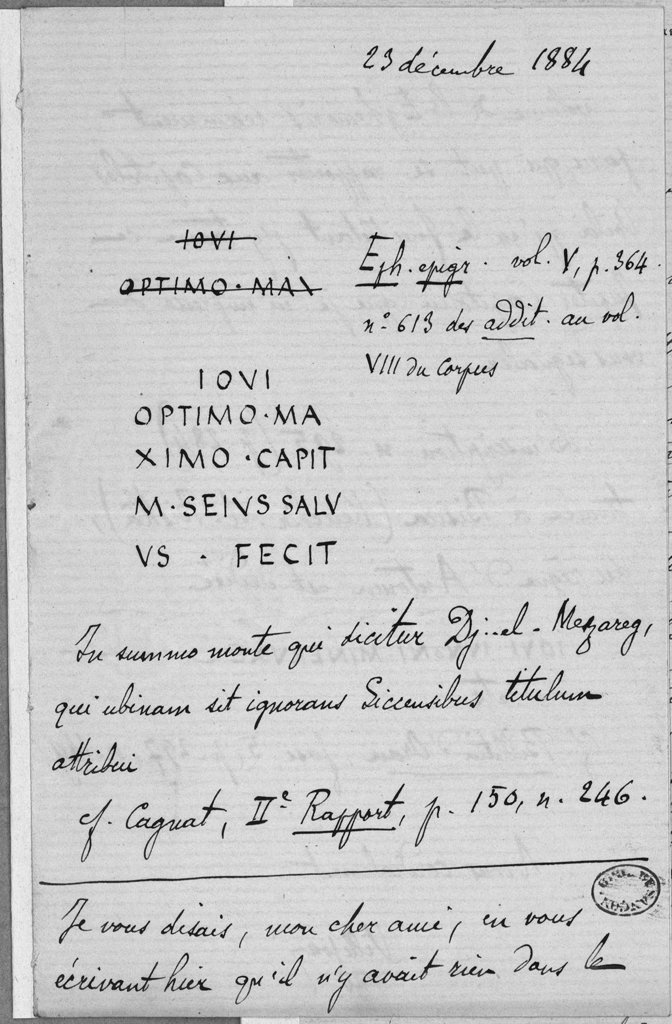 23 décembre 1884
IOVI
OPTIMO·MAX
Eph. epigr. vol. V, p. 364.
nº 613 des addit. au vol.
VIII du Corpus
IOVI
OPTIMO·MA
XIMO·CAPIT
M·SEIVS SALV
VS · FECIT
In summo monte qui dicitur Dj.-el-Mezzareg,
qui ubinam sit ignorans Siccensibus titulum
attribui
cf. Cagnat, IIe Rapport, p. 150, n. 246.
Je vous disais, mon cher ami, en vous
écrivant hier qu'il n'y avait rien dans le